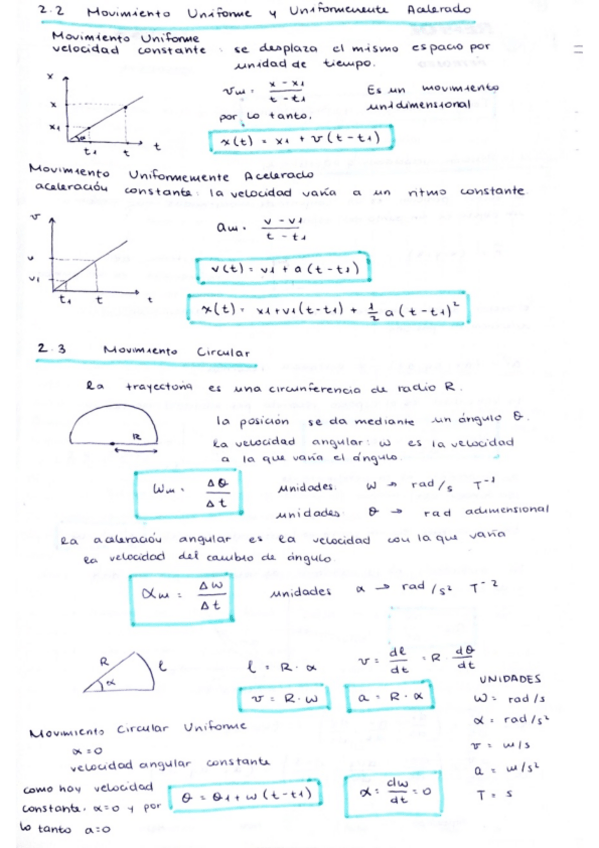 2.2 Movimiento Uniforme y Uniformemente Acelerado
Movimiento Uniforme
velocidad constante : se desplaza el mismo espacio por
unidad de tiempo.
x
x
x1
t1 t t
vm = x - x1 / t - t1
Es un movimiento
unidimensional
por lo tanto,
x(t) = x1 + v(t - t1)
Movimiento Uniformemente Acelerado
aceleración constante: la velocidad varía a un ritmo constante
v
v
v1
t1 t t
am = v - v1 / t - t1
v(t) = v1 + a(t - t1)
x(t) = x1 + v1(t - t1) + 1/2 a(t - t1)²
2.3 Movimiento Circular
La trayectoria es una circunferencia de radio R.
R
la posición se da mediante un ángulo θ.
La velocidad angular: ω es la velocidad
a la que varía el ángulo.
ωm = Δθ / Δt
unidades: ω → rad/s T⁻¹
unidades: θ → rad adimensional
La aceleración angular es la velocidad con la que varía
la velocidad del cambio de ángulo
αm = Δω / Δt
unidades α → rad/s² T⁻²
R α l
l = R · α
v = dl/dt = R · dθ/dt
v = R · ω
a = R · α
UNIDADES
ω = rad/s
α = rad/s²
v = m/s
a = m/s²
T = s
Movimiento Circular Uniforme
α = 0
velocidad angular constante
como hay velocidad
constante, α=0 y por
lo tanto a=0
θ = θ1 + ω(t - t1)
α = dω/dt = 0